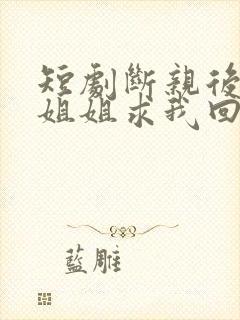 短劇斷親後
姐姐求我回
藍雕